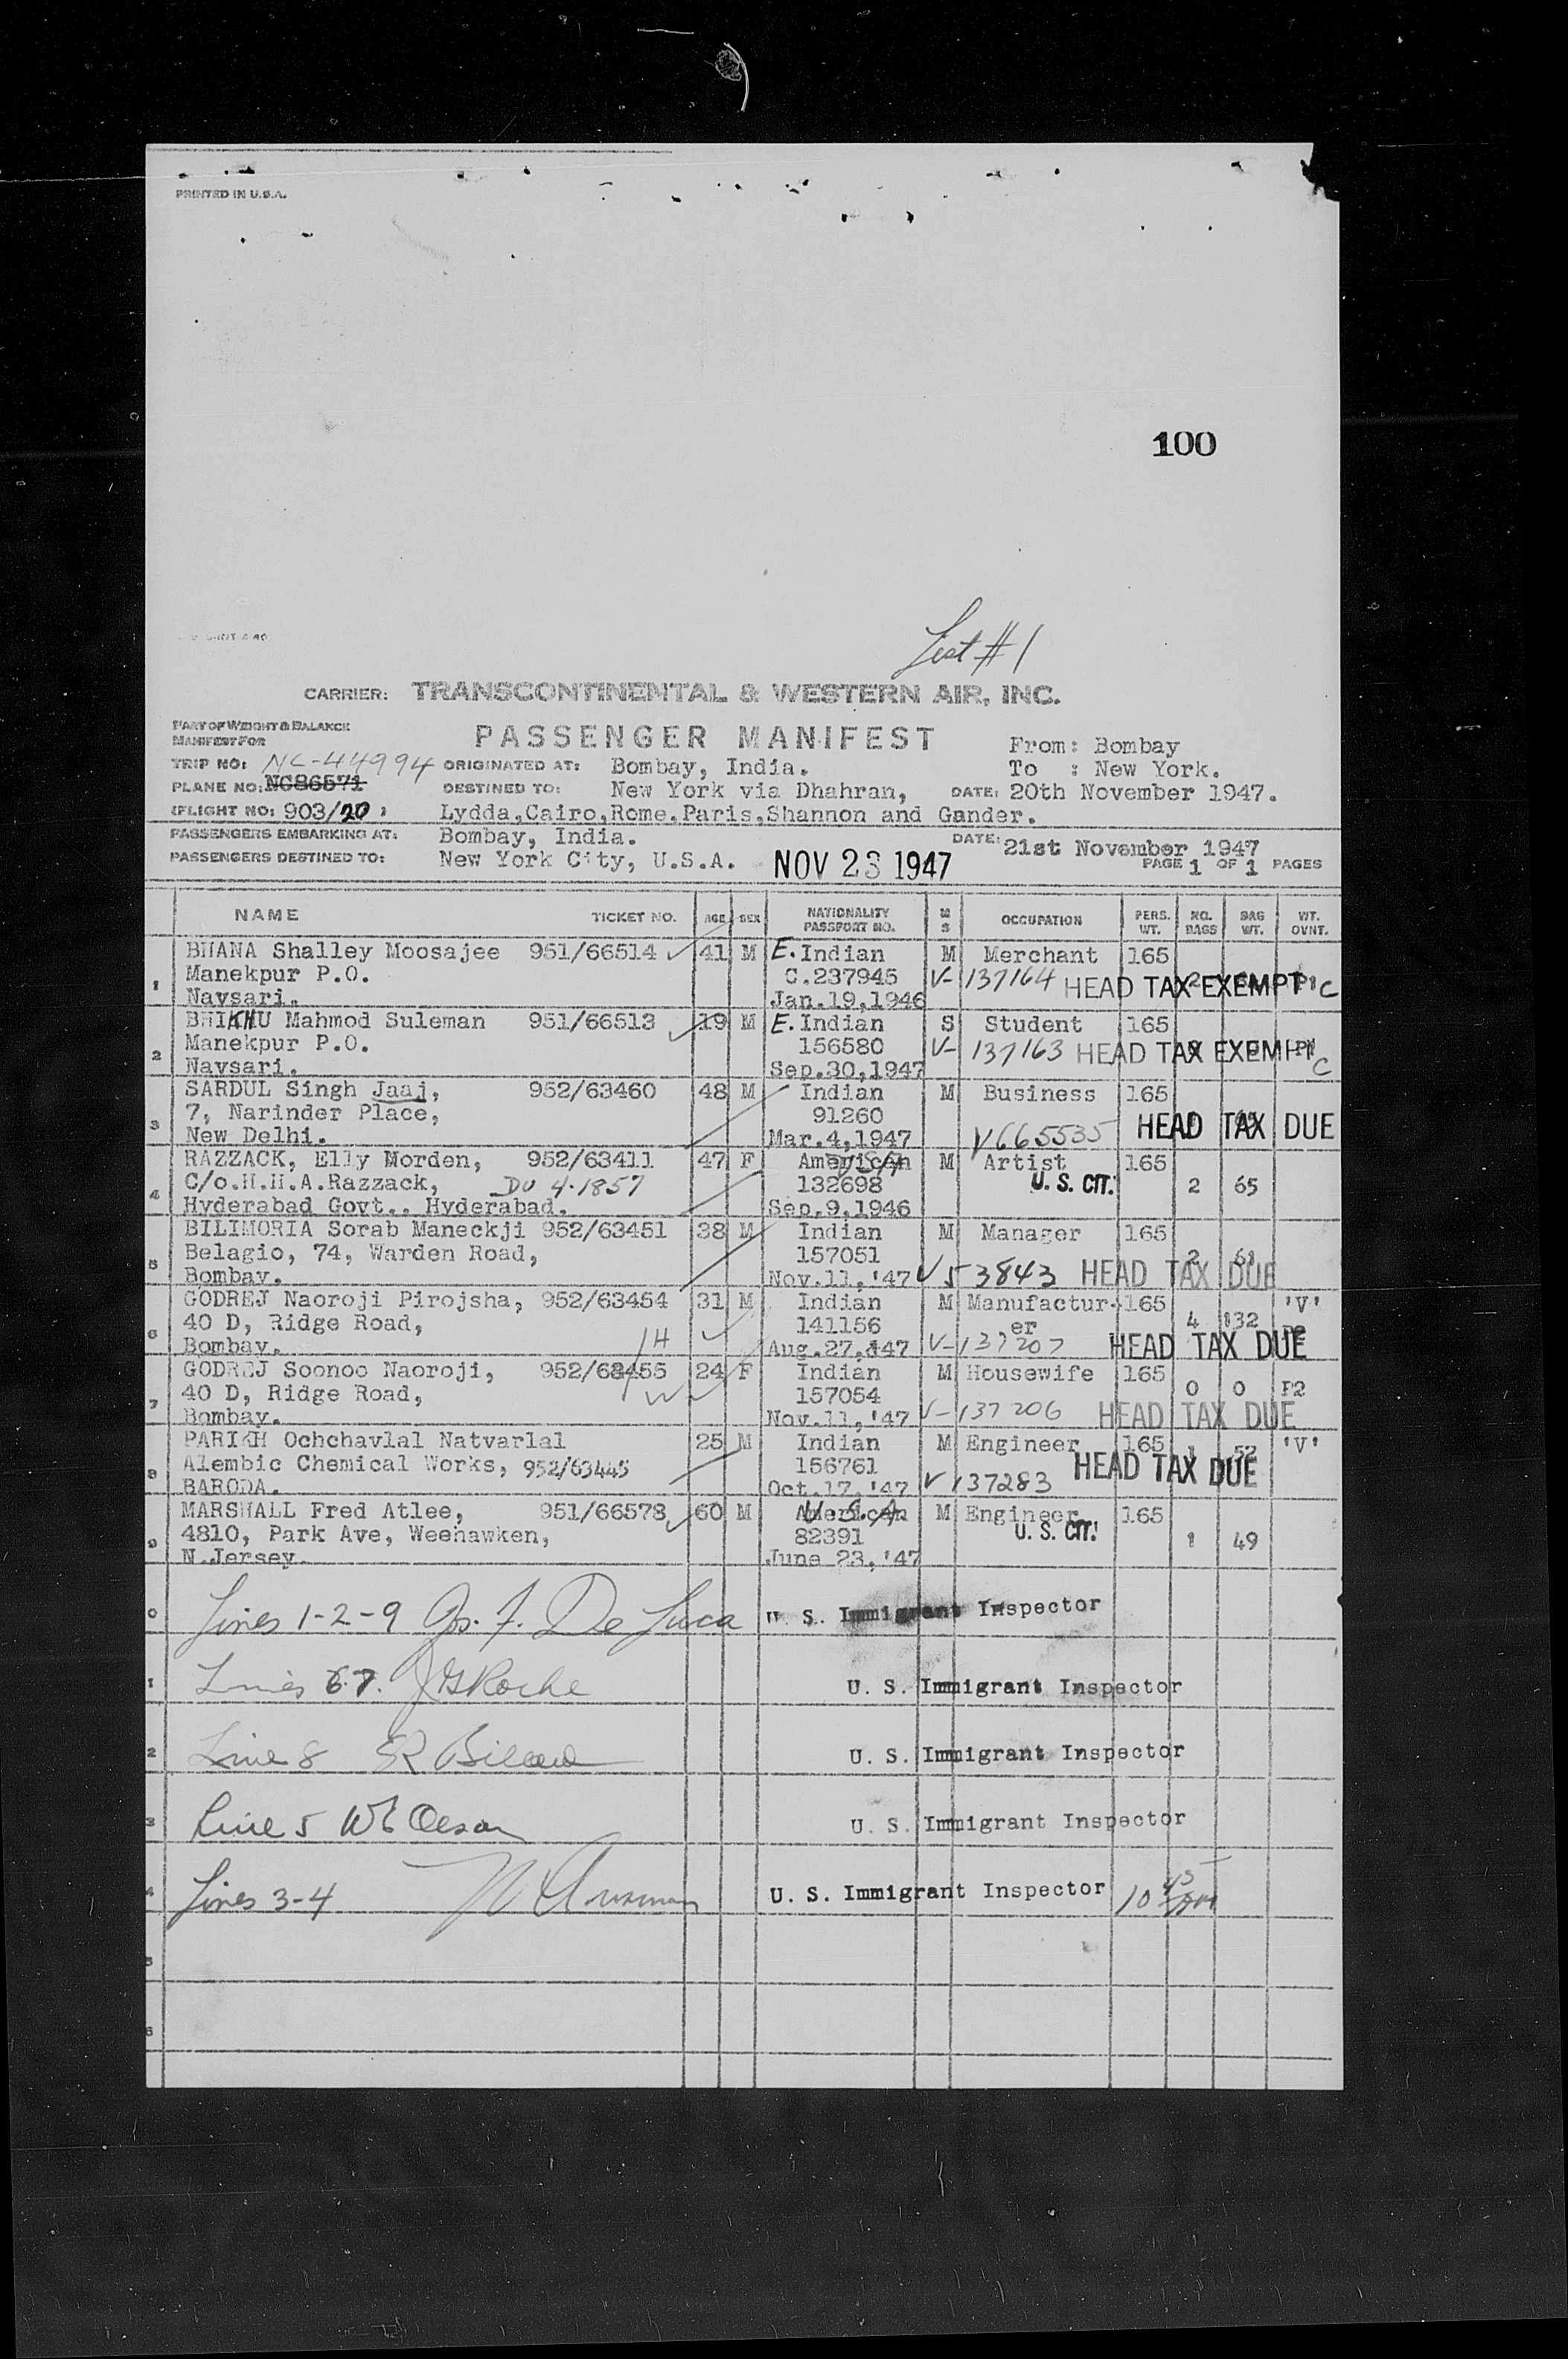 PRINTED IN U.S.A.
100
List #1
CARRIER: TRANSCONTINENTAL & WESTERN AIR, INC.
PART OF WEIGHT & BALANCE
MANIFEST FOR
PASSENGER MANIFEST
From: Bombay
TRIP NO: NC-44994 ORIGINATED AT: Bombay, India. To : New York.
PLANE NO: NC86571 DESTINED TO: New York via Dhahran, DATE: 20th November 1947.
(FLIGHT NO: 903/20 ) Lydda,Cairo,Rome,Paris,Shannon and Gander.
PASSENGERS EMBARKING AT: Bombay, India. DATE: 21st November 1947
PASSENGERS DESTINED TO: New York City, U.S.A. NOV 23 1947 PAGE 1 OF 1 PAGES
NAME TICKET NO. AGE SEX NATIONALITY PASSPORT NO. M S OCCUPATION PERS. WT. NO. BAGS BAG WT. WT. OVNT.
BHANA Shalley Moosajee 951/66514 41 M E. Indian M Merchant 165
Manekpur P.O. C.237945 V-137164 HEAD TAX EXEMPT C
1 Navsari. Jan.19,1946
BHIKHU Mahmod Suleman 951/66513 19 M E. Indian S Student 165
2 Manekpur P.O. 156580 V-137163 HEAD TAX EXEMPT C
Navsari. Sep.30,1947
SARDUL Singh Jaaj, 952/63460 48 M Indian M Business 165
3 7, Narinder Place, 91260 HEAD TAX DUE
New Delhi. Mar.4,1947 V665535
RAZZACK, Elly Morden, 952/63411 47 F American USA M Artist 165
4 C/o.H.H.A.Razzack, DU 4-1857 132698 U. S. CIT. 2 65
Hyderabad Govt., Hyderabad. Sep.9,1946
BILIMORIA Sorab Maneckji 952/63451 38 M Indian M Manager 165
5 Belagio, 74, Warden Road, 157051 2 61
Bombay. Nov.11,'47 V53843 HEAD TAX DUE
GODREJ Naoroji Pirojsha, 952/63454 31 M Indian M Manufactur- 165 'V'
6 40 D, Ridge Road, 1H 141156 er 4 132
Bombay. Aug.27,'47 V-137207 HEAD TAX DUE
GODREJ Soonoo Naoroji, 952/63455 24 F Indian M Housewife 165
7 40 D, Ridge Road, 1W 157054 0 0 P2
Bombay. Nov.11,'47 V-137206 HEAD TAX DUE
PARIKH Ochchavlal Natvarlal 25 M Indian M Engineer 165 1 52 'V'
8 Alembic Chemical Works, 952/63445 156761 HEAD TAX DUE
BARODA. Oct.17,'47 V137283
MARSHALL Fred Atlee, 951/66578 60 M American U.S.A. M Engineer 165
9 4810, Park Ave, Weehawken, 82391 U. S. CIT. 1 49
N.Jersey. June 23,'47
0 Lines 1-2-9 Jos. F. De Luca U. S. Immigrant Inspector
1 Lines 6.7. Roche U. S. Immigrant Inspector
2 Line 8 U. S. Immigrant Inspector
3 Line 5 U. S. Immigrant Inspector
4 Lines 3-4 U. S. Immigrant Inspector 10 45
5
6